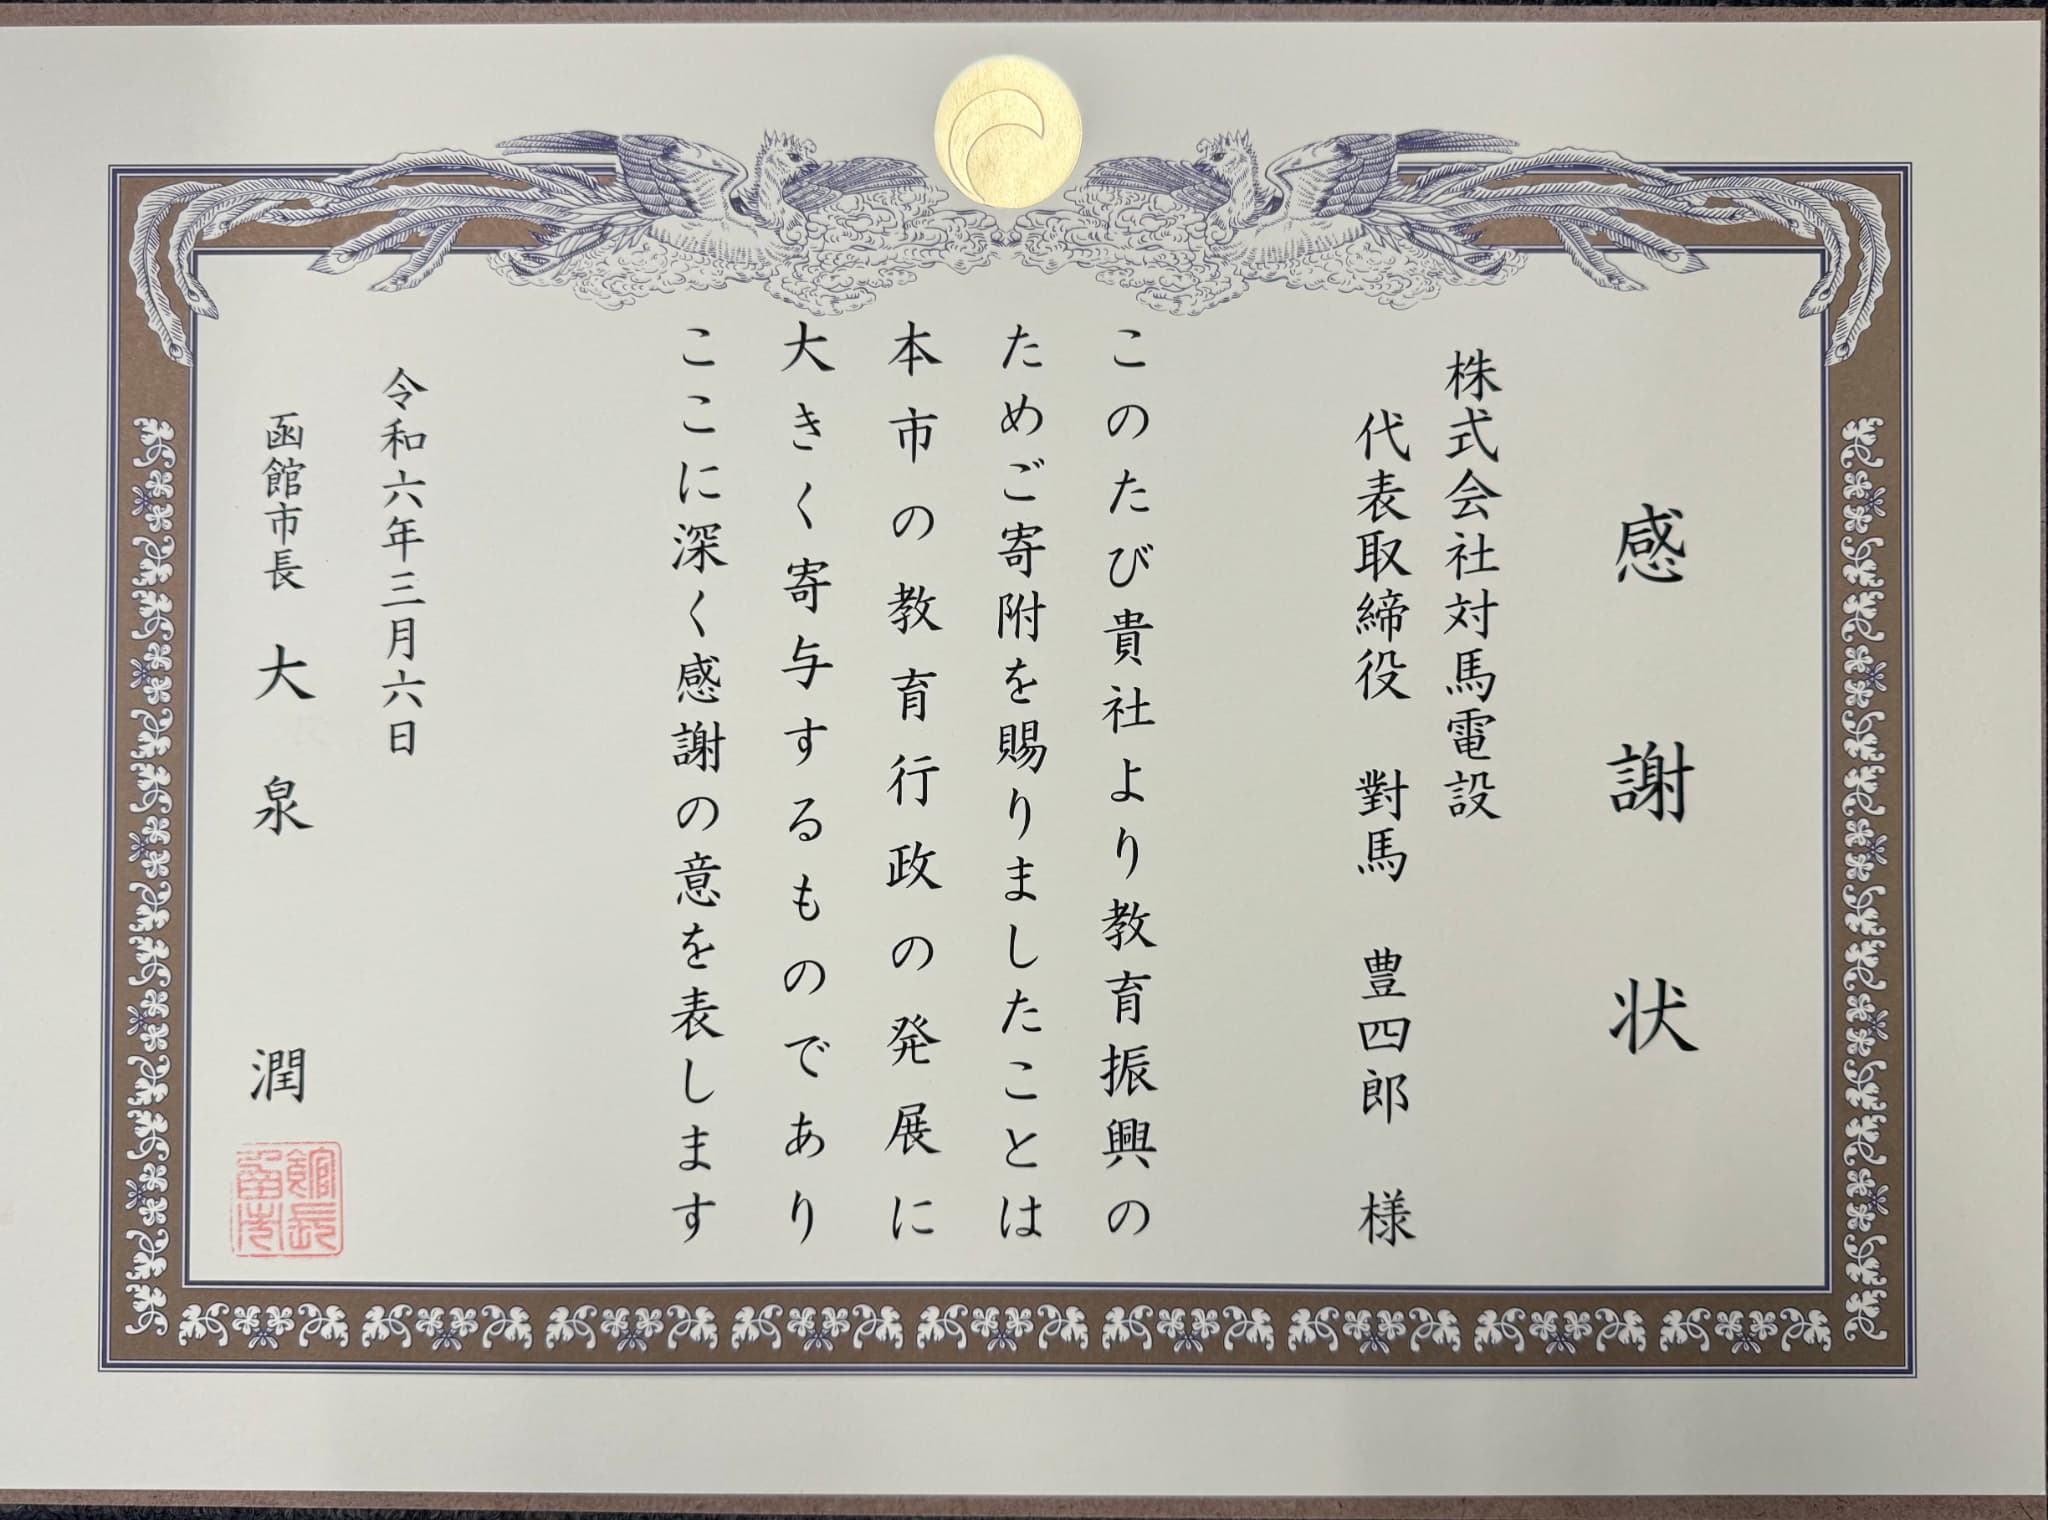 感謝状
株式会社対馬電設
代表取締役 對馬 豊四郎 様
このたび貴社より教育振興の
ためご寄附を賜りましたことは
本市の教育行政の発展に
大きく寄与するものであり
ここに深く感謝の意を表します
令和六年三月六日
函館市長 大泉 潤